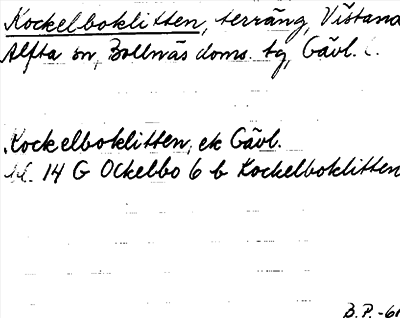 Kockelboklitten, terräng, Vistana
Alfta sn, Bollnäs doms. tg, Gävl. l.
Kockelboklitten, ek Gävl.
bl. 14 G Ockelbo 6 b Kockelboklitten
B.P.-61